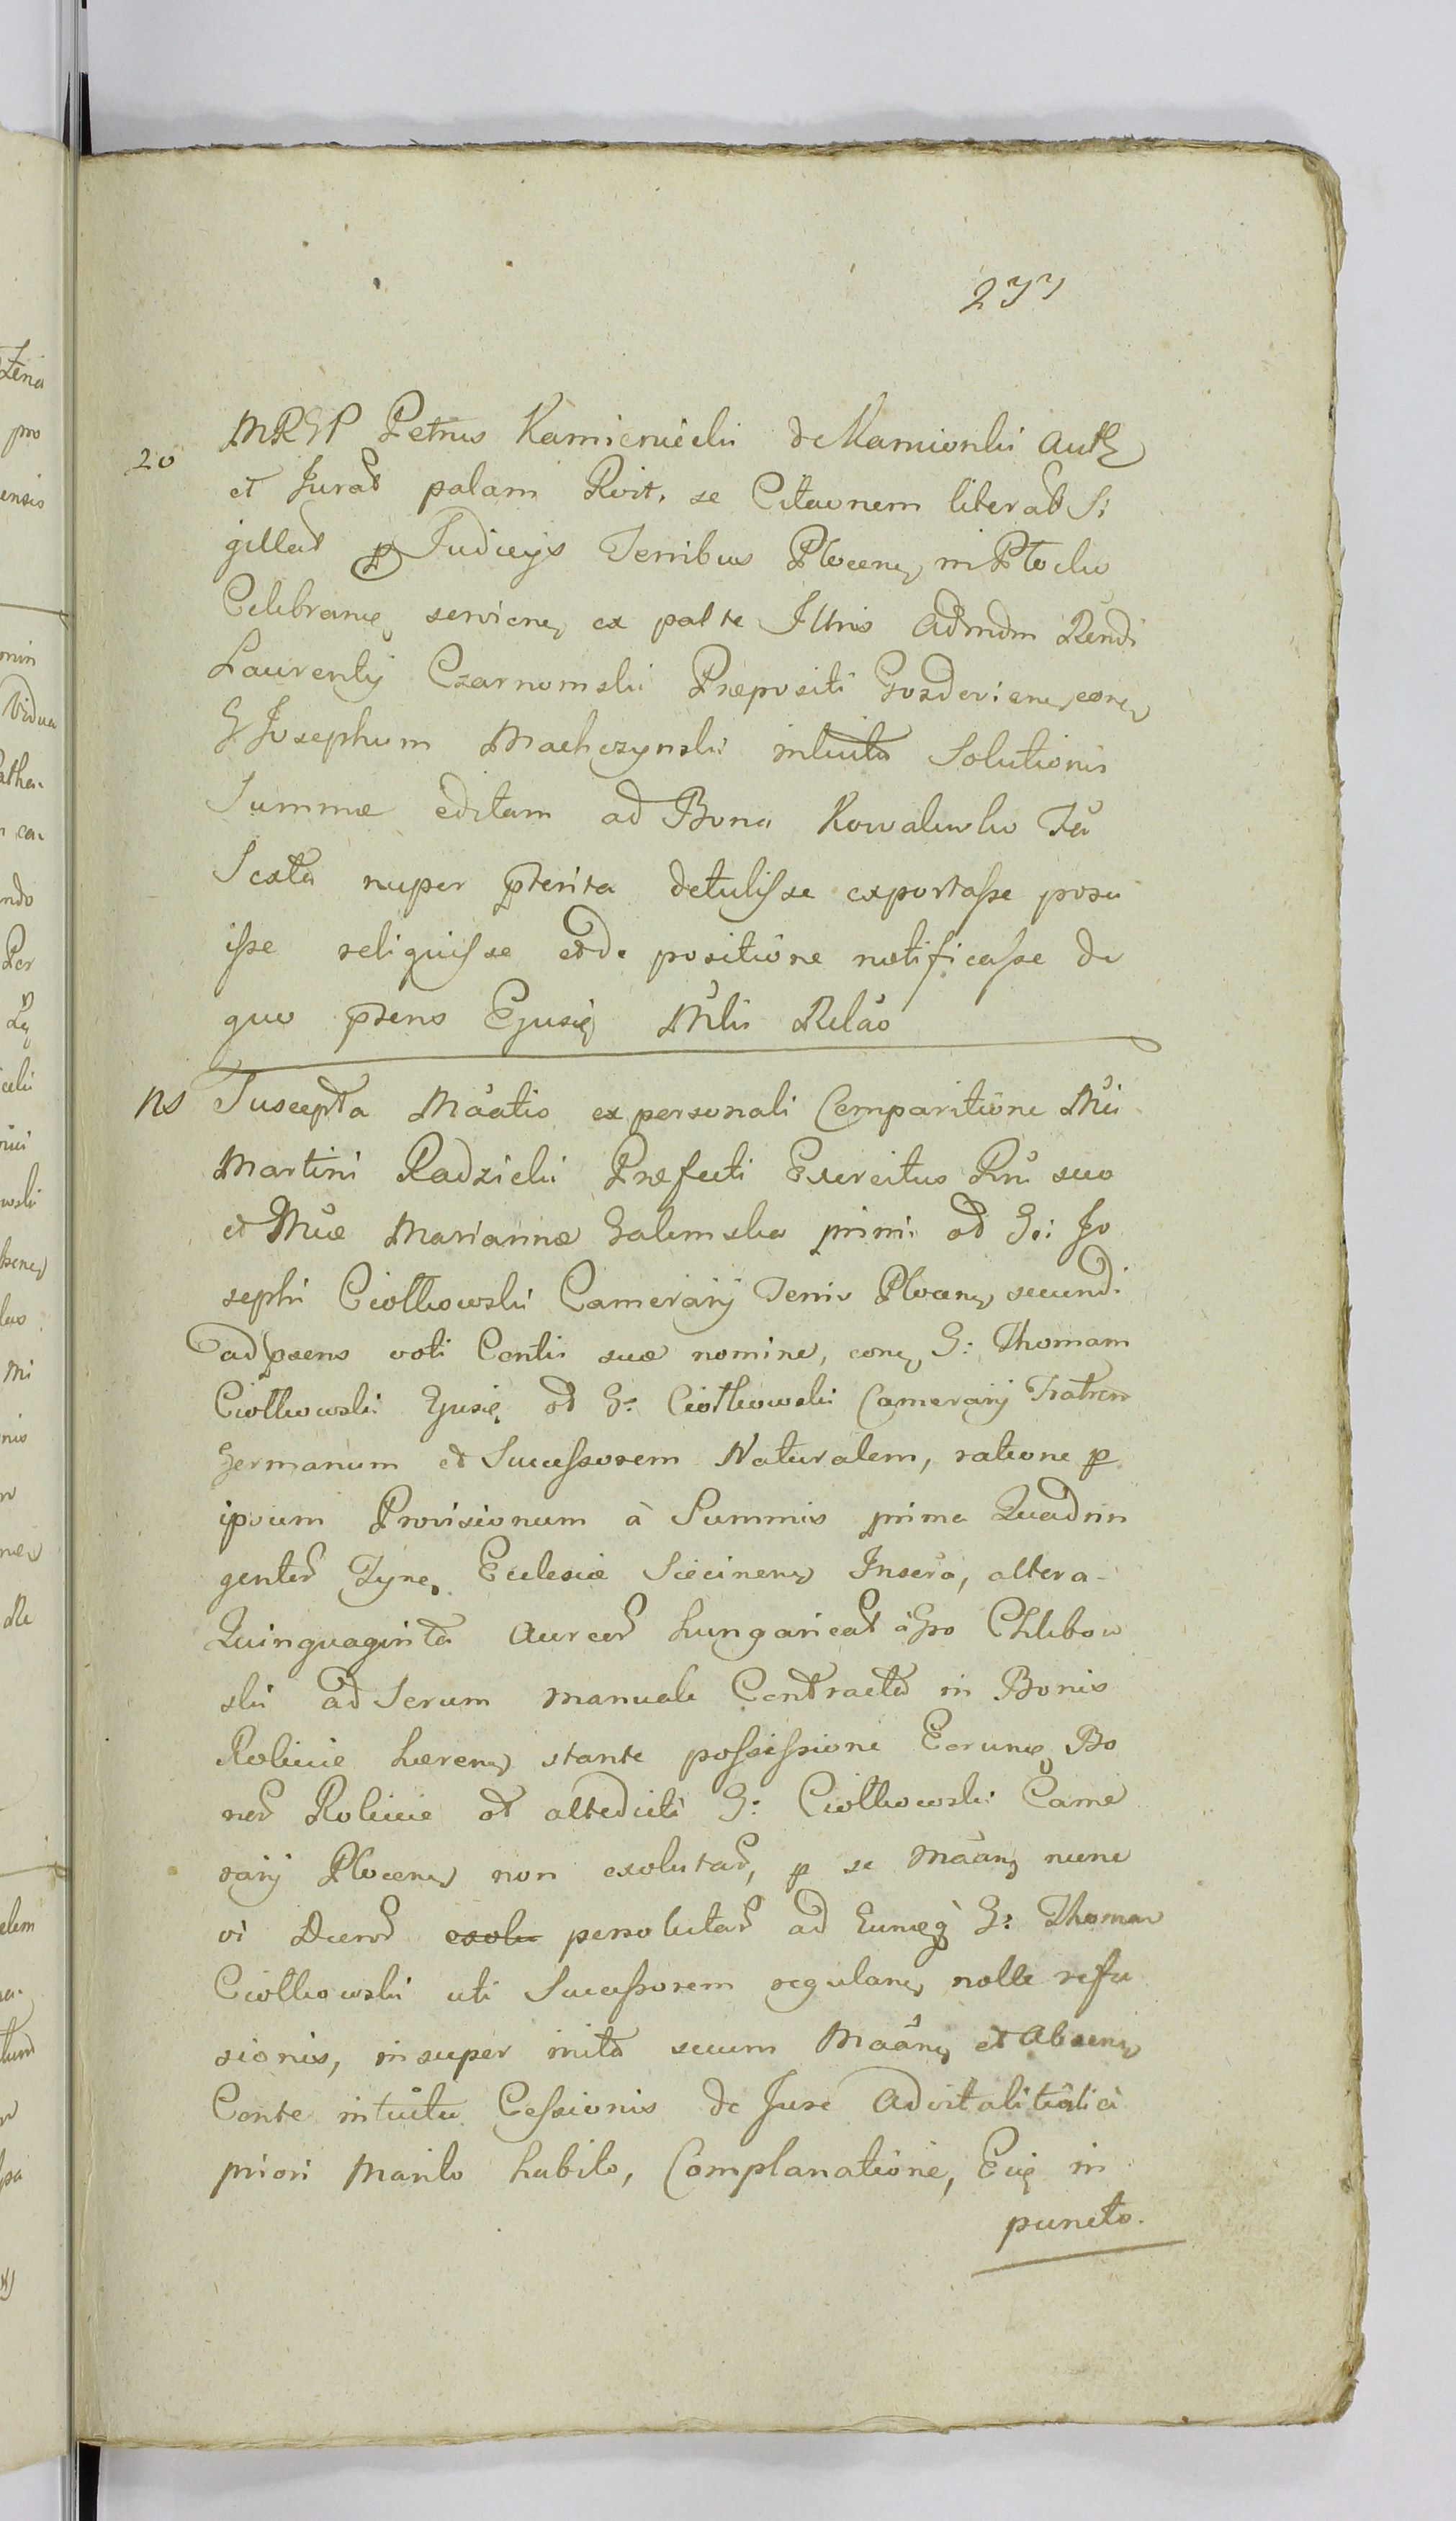 277
20 MRGP Petrus Kamieniecki de Kamionki Auth
et Jurat palam Rvit. se Citaonem literat Si
gillat p Judicijs Terribus Plocens in Plocko
Celebrans serviens ex parte Illris Admdm Rendi
Laurentij Czarnomski Præpositi Gozdoviens cons
G Josephum Machczynski intuitu Solutionis
Summæ editam ad Bona Kowalewko Fâ
Sexta nuper pterita detulisse exportasse posu
isse reliquisse etde positione notificasse de
quo ptens Ejusq Mlis Relão
NS Suscepta Mãatio ex personali Comparitione Mci
Martini Radzicki Præfecti Exercitus Rni suo
et Mcæ Mariannæ Galemska primi ad G: Jo
sephi Ciołkowski Camerarij Terris Plocens secundi
ad psens voti Contis suæ nomine, cons G: Thomam
Ciołkowski Ejusq ad G: Ciołkowski Camerarij Fratrem
Germanum et Successorem Naturalem, ratione p
ipsum Provisionum à Summis prima Quadrin
gentor Tyns Eclesiæ Siecinens Inserõ, altera
Quinquaginta Aureor hungarical Chlebow
ski ad Serum manuale Contractu in Bonis
Rolicie hærens stante possessione Eorunq Bo
nor Rolicie ad altedicti G: Ciołkowski Came
rarij Plocens non exolutar, p se Mãans nunc
vi Decret exolu persolutar ad Eumq G: Thomam
Ciołkowski uti Successorem regulans nolle refu
sionis, insuper inita secum Mãans et Absens
Conte intuitu Cessionis de Jure Advitalitatia
priori Marito habito, Complanatione, Eiq in
puncto.